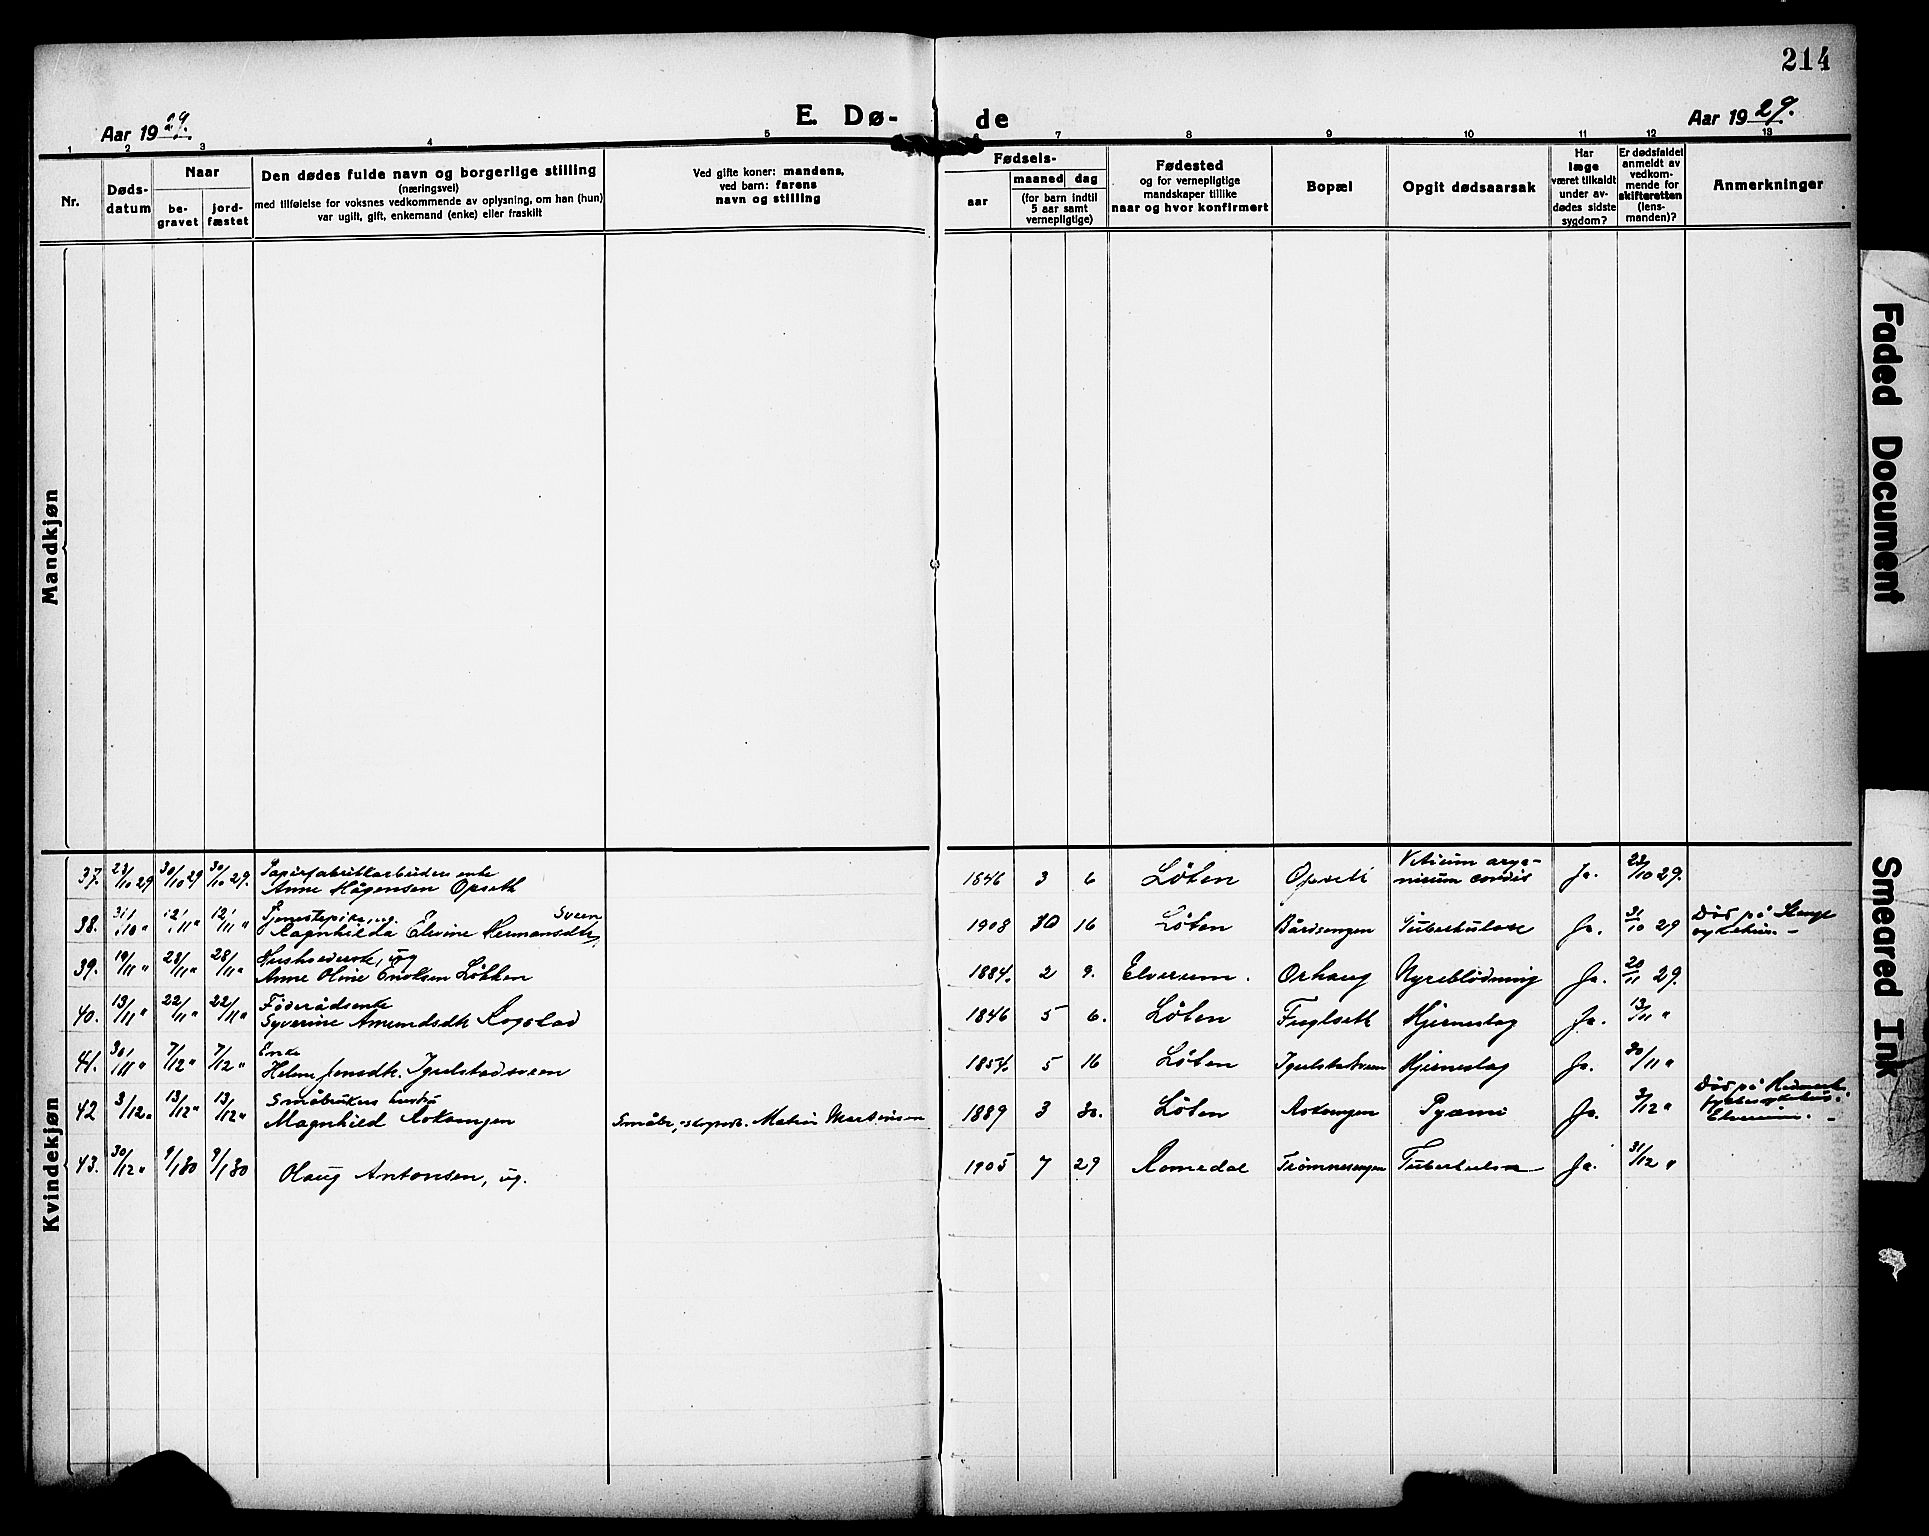 214
E. Dø- de
Aar 1929.
Aar 1929.
1 2 3 4 5 6 7 8 9 10 11 12 13
Nr.
Døds-
datum
Naar
be-
gravet
jord-
fæstet
Den dødes fulde navn og borgerlige stilling
(næringsvei)
med tilføielse for voksnes vedkommende av oplysning, om han (hun)
var ugift, gift, enkemand (enke) eller fraskilt
Ved gifte koner: mandens,
ved barn: farens
navn og stilling
Fødsels-
aar
maaned dag
(for barn indtil
5 aar samt
vernepligtige)
Fødested
og for vernepligtige
mandskaper tillike
naar og hvor konfirmert
Bopæl
Opgit dødsaarsak
Har
læge
været tilkaldt
under av-
dødes sidste
sygdom?
Er dødsfaldet
anmeldt av
vedkom-
mende for
skifteretten
(lens-
manden)?
Anmerkninger
Mandkjøn
Kvindekjøn
37. 23/10 29 30/10 29 30/10 29. Papirfabrikkarbeiders enke
Anne Hågensen Opseth
1846 3 6 Løten Opseth
cordis Ja. 23/10 29.
38. 31/10 " 12/11 " 12/11 " Tjenestepike, ug.
Ragnhilda Elevine Hermansdtr. Sveen
1908 10 16 Løten Bårdsengen Tuberkulose Ja. 31/10 29 Død på Stange
sykehus. -
39. 19/11 " 28/11 " 28/11 " ug
Anne Oline Enoksen Løkken
1884. 2 9. Elverum. Orhaug Nyreblødning Ja. 20/11 29.
40. 13/11 " 22/11 " 22/11 " Føderådsenke
Syverine Amundsdtr. Rogstad
1846 5 6. Løten Fuglseth Hjerneslag Ja. 13/11 "
41. 30/11 " 7/12 " 7/12 " Enke
Helene Jensdtr. Igelstadsveen
1854. 5 16 Løten Igelstadsveen Hjerneslag Ja. 30/11 "
42 3/12 " 13/12 " 13/12 " Småbrukers hustru
Magnhild Rokoengen
Småbr., skogsarb. Martinsen
1889 3 30. Løten Rokoengen Pyæmi Ja. 3/12 " Død på Hedmark
Elverum. -
43. 30/12 " 9/1 30 9/1 30 Olaug Antonsen, ug.
1905 7 29 Romedal Trømnesengen Tuberkulose Ja. 31/12 "
Faded Document
Smeared Ink